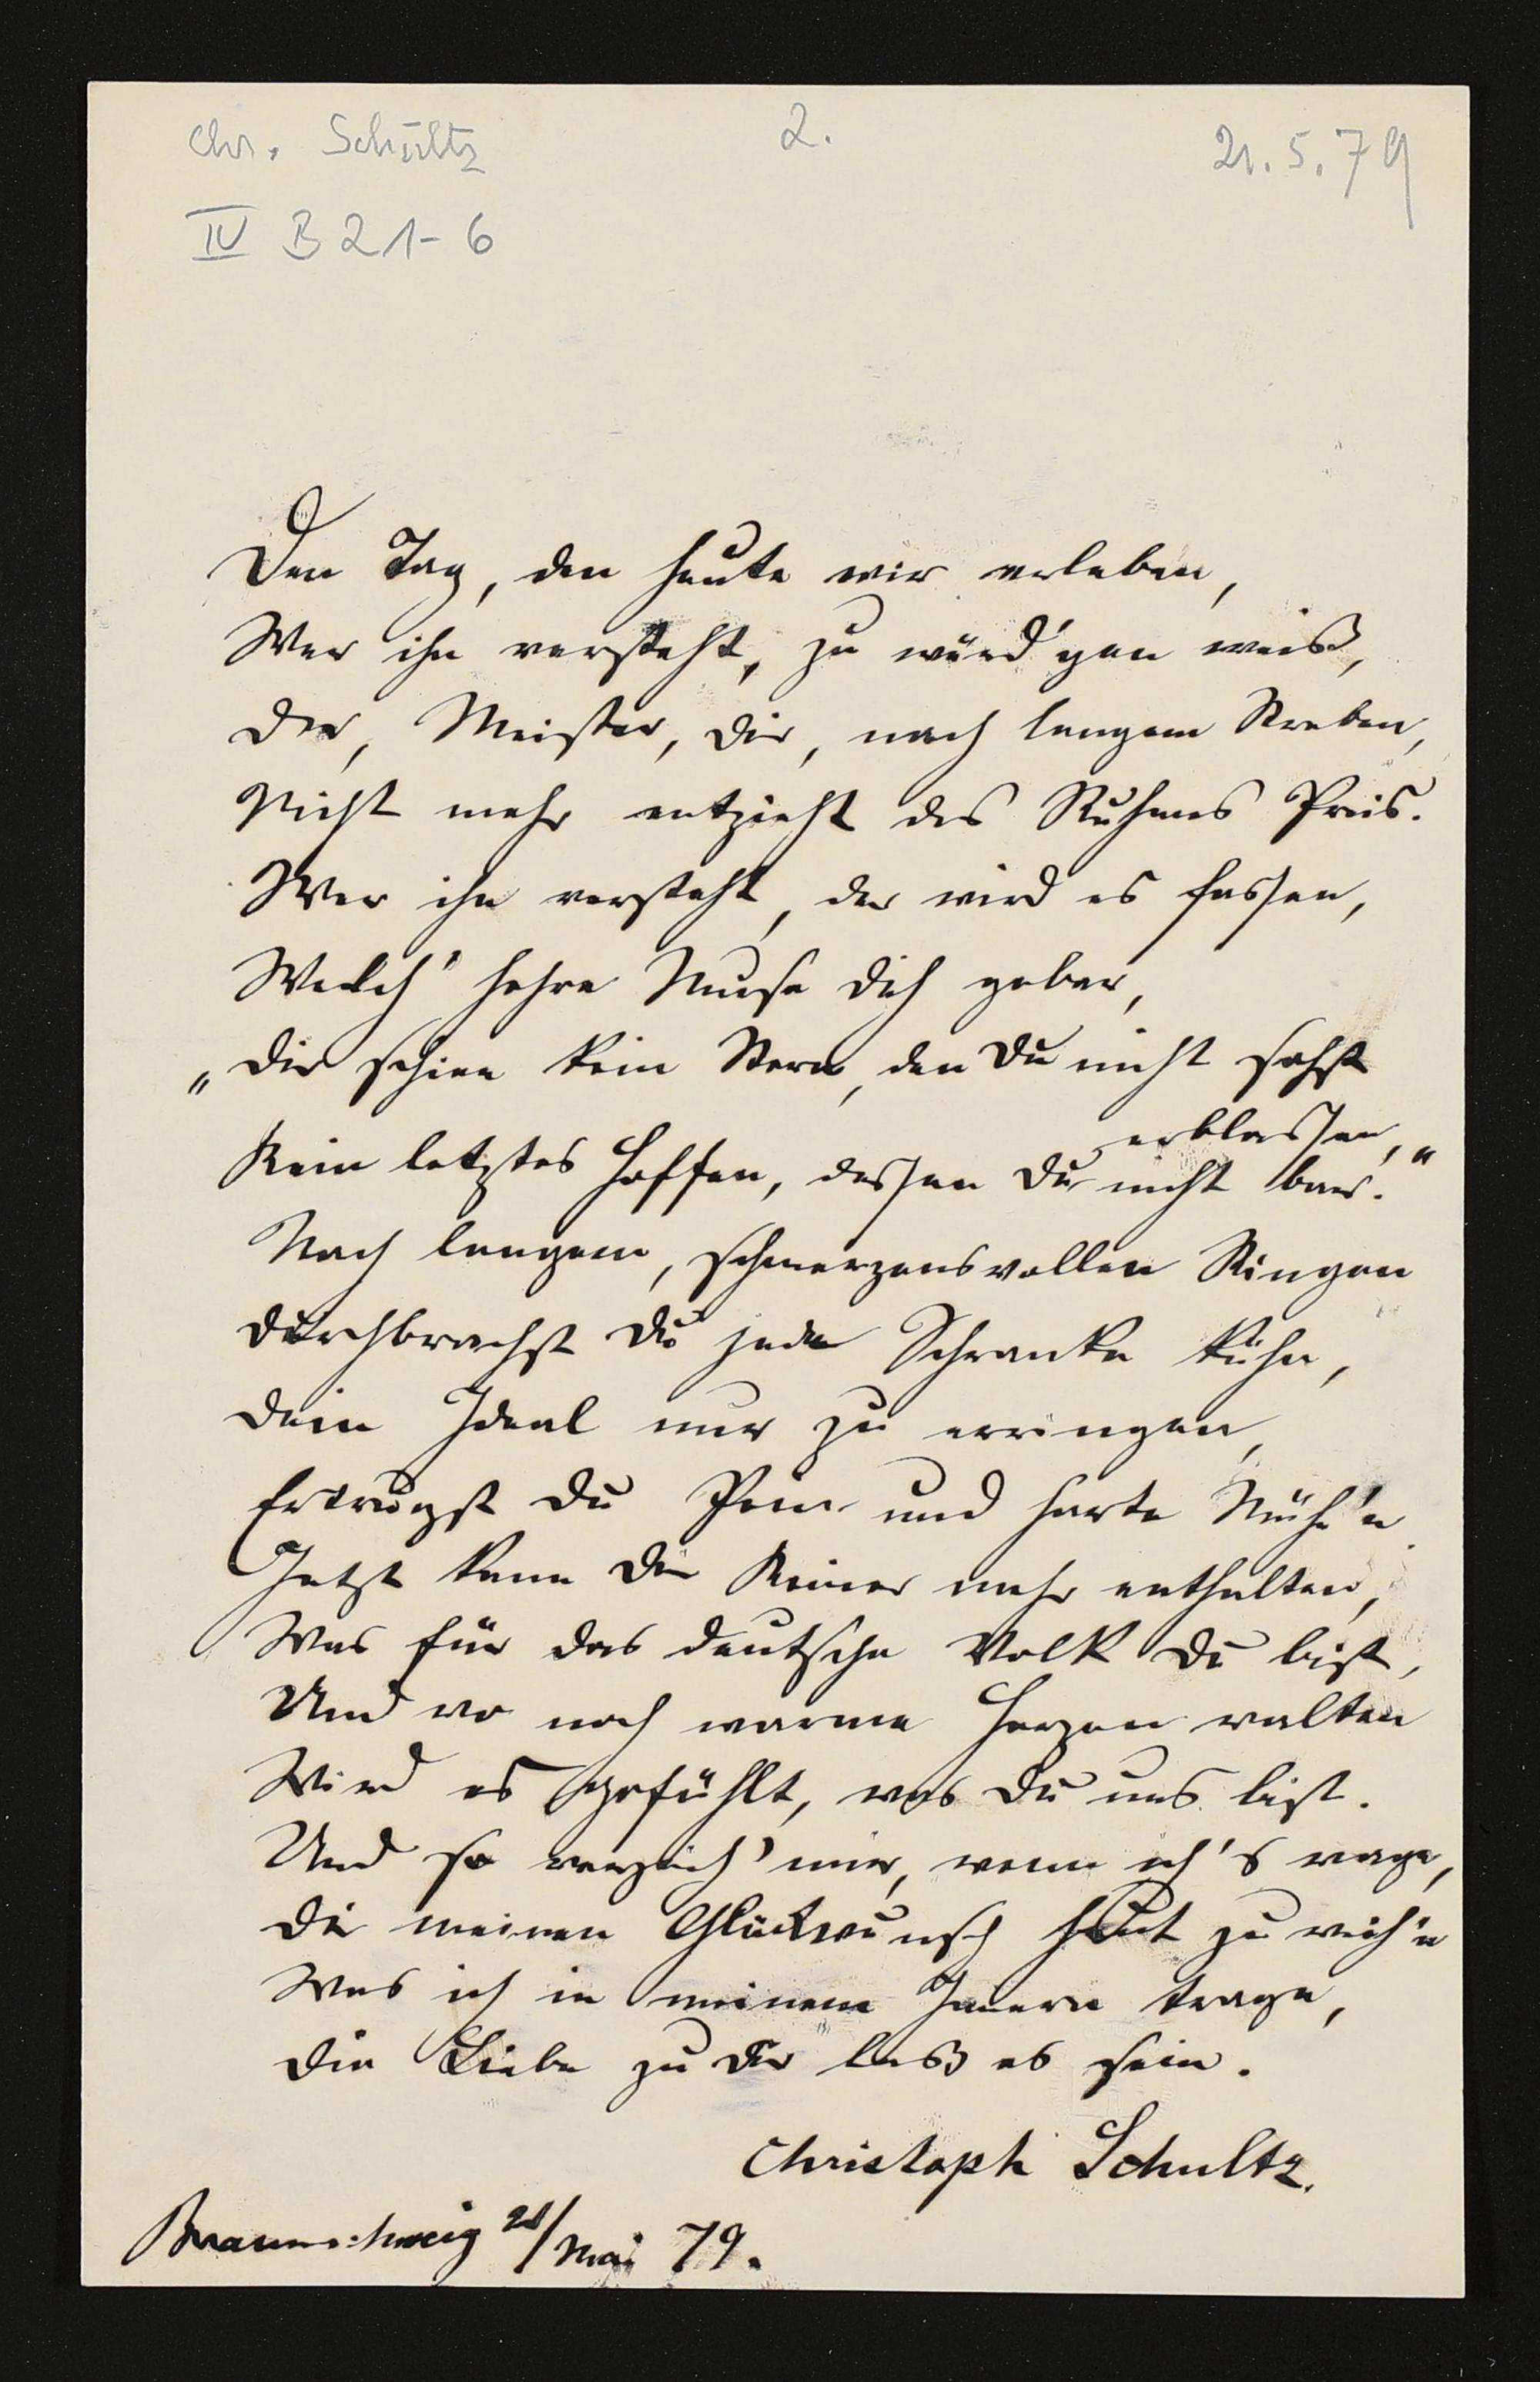 Chr. Schültz
2.
21.5.79
IV B 21-6
Den Tag, den heute wir erleben,
Wer ihn versteht, zu würd'gen weiß,
Der, Meister, Dir, nach langem Streben,
Nicht mehr entzieht des Ruhmes Preis.
Wer ihn versteht, der wird es fassen,
Welch' hehre Muse Dich gebar,
„Dir schien kein Stern, den Du nicht sahst
erblassen,
Kein letztes Hoffen, dessen Du nicht bar."
Nach langem, schmerzensvollen Ringen
Durchbrachst Du jede Schranke kühn,
Dein Ideal nur zu erringen,
Ertrugst Du Pein und harte Müh'n.
Jetzt kann Dir Keiner mehr enthalten,
Was für das deutsche Volk Du bist,
Und wo noch warme Herzen walten
Wird es gefühlt, was Du uns bist.
Und so verzeih' mir, wenn ich's wage,
Dir meinen Glückwunsch heut zu weih'n
Was ich in meinem Innern trage,
Die Liebe zu Dir laß es sein.
Christoph Schultz.
Braunschweig 21/Mai 79.